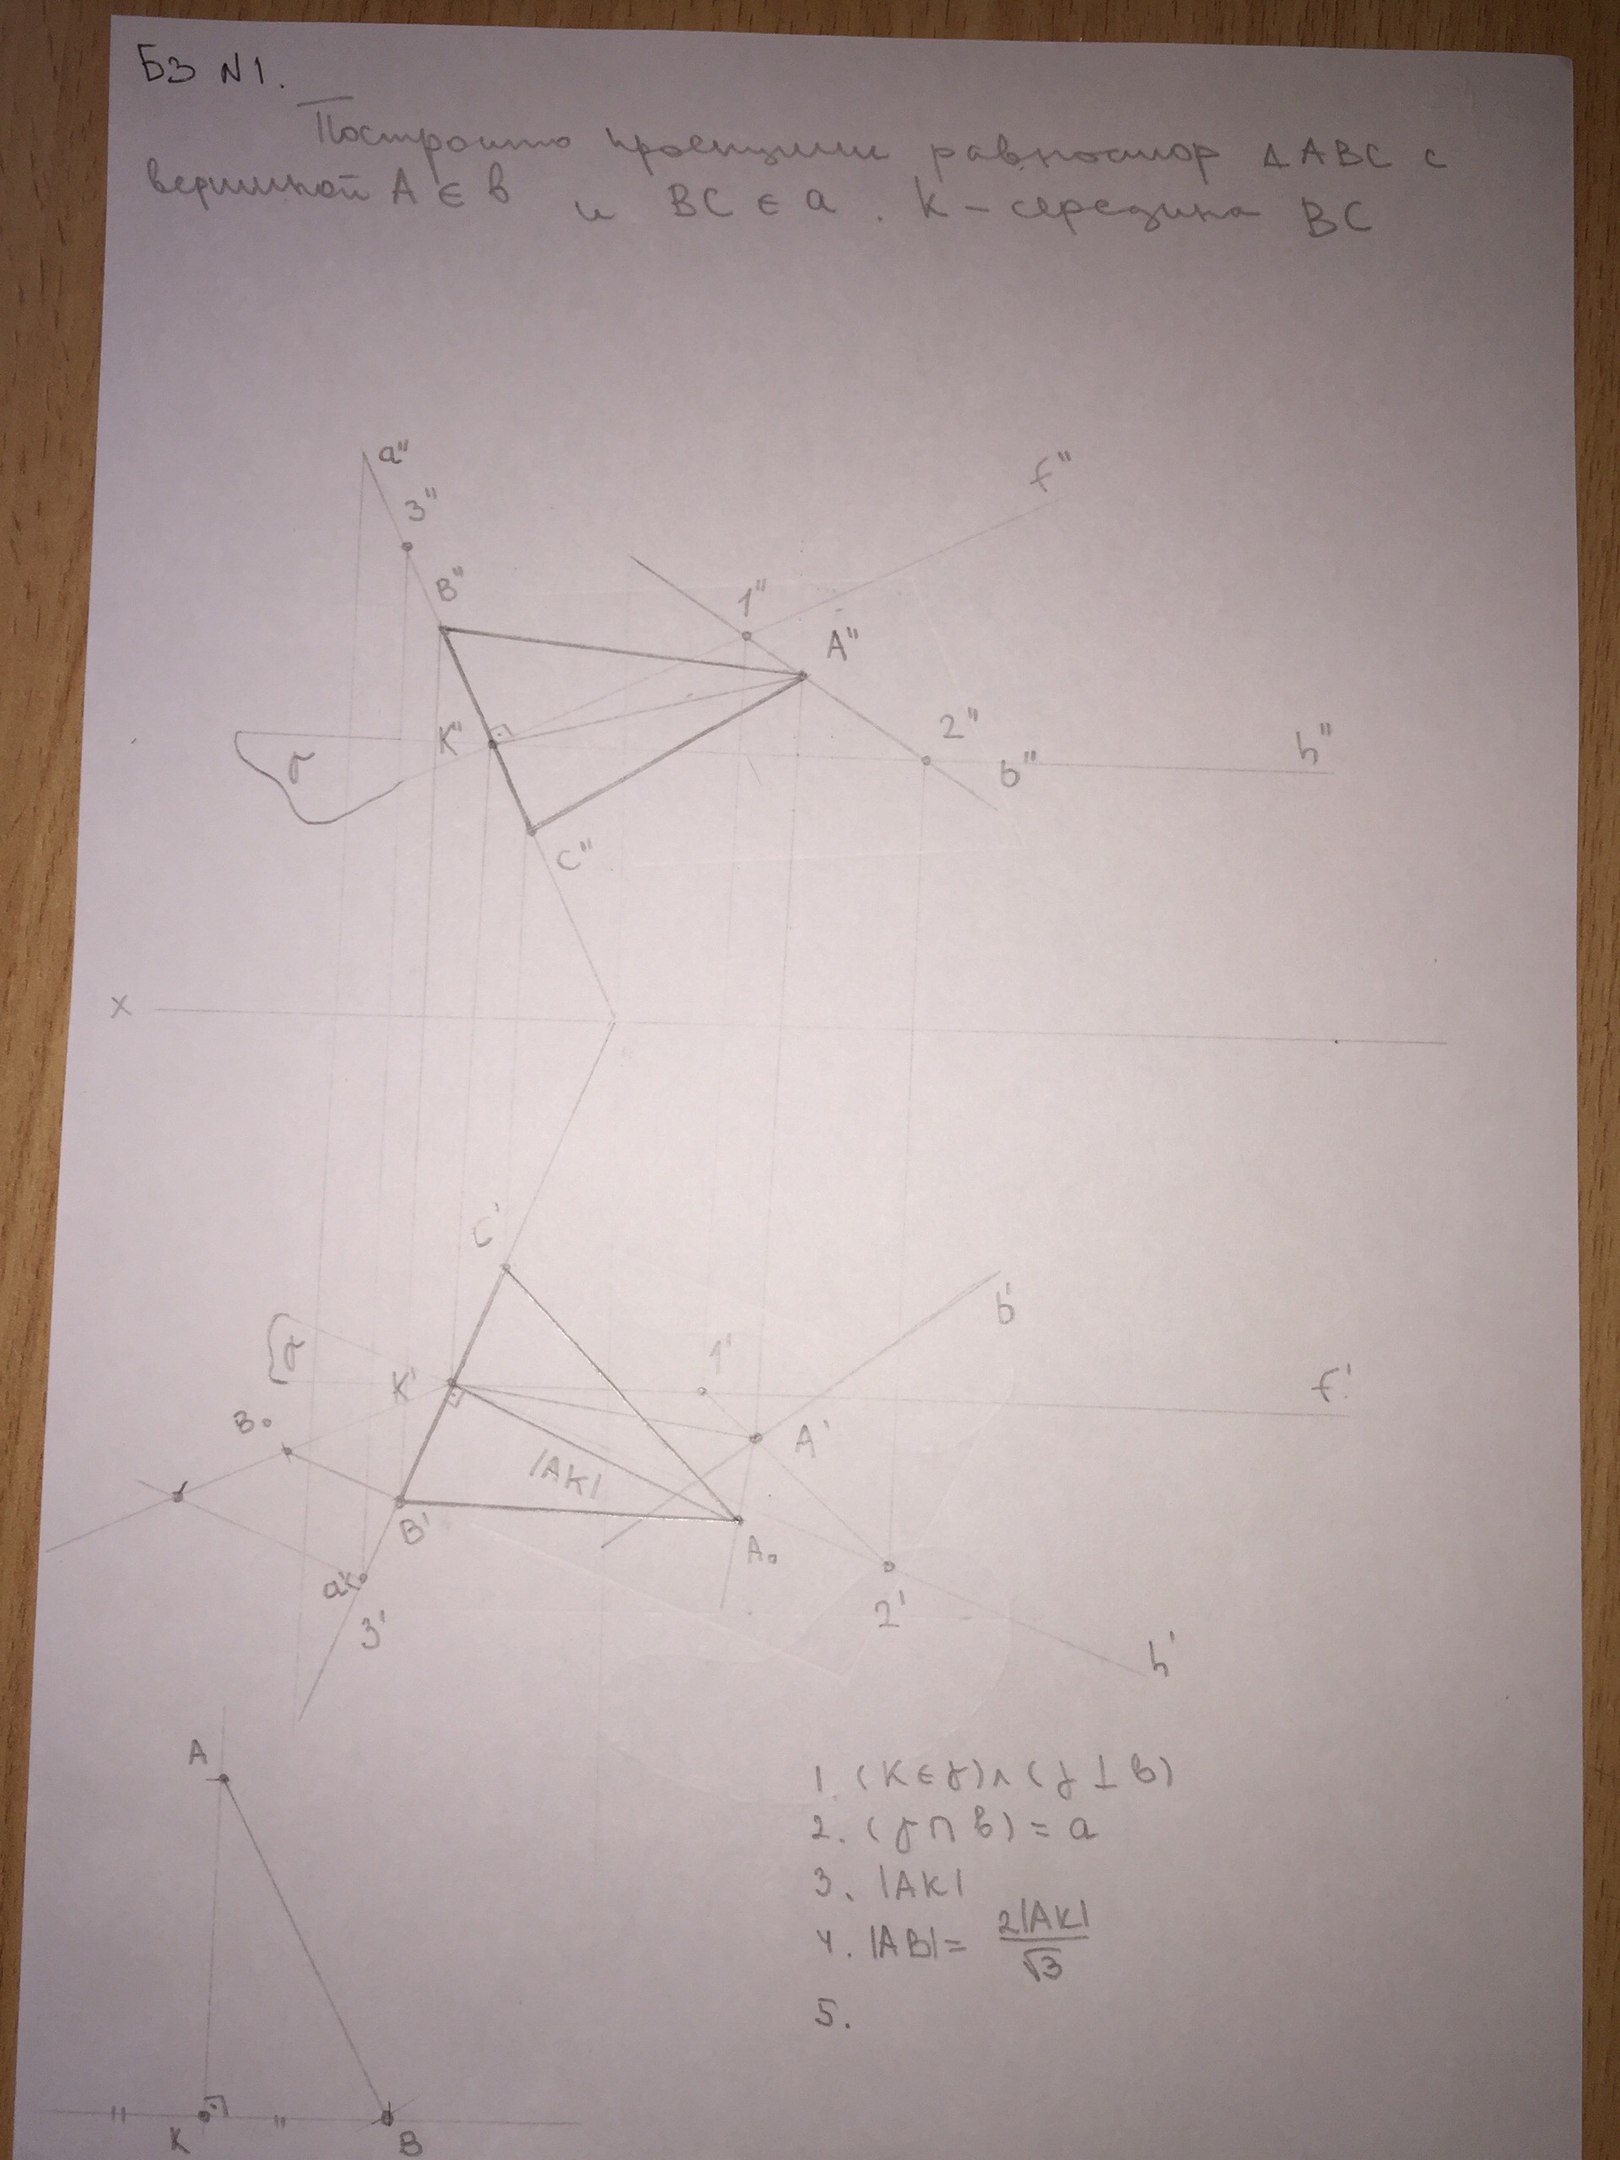 БЗ N1.
Построить проекции равностор ΔABC с
вершиной A ∈ b и BC ∈ a. K – середина BC
a"
3"
f"
B"
1"
A"
K"
2"
b"
h"
σ
C"
x
C'
b'
σ
K'
1'
f'
B₀
A'
|AK|
B'
A₀
a'
3'
2'
h'
A
1. (K ∈ γ) ∧ (γ ⊥ b)
2. (γ ∩ b) = a
3. |AK|
4. |AB| = 2|AK|/√3
5.
K
B